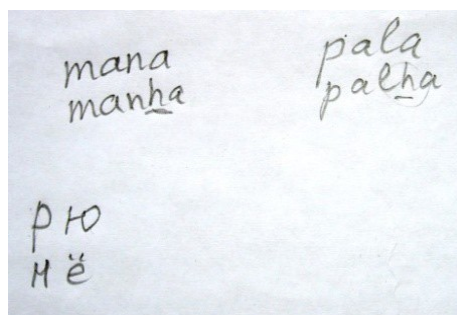 mana
manha
pala
palha
р ю
н ё